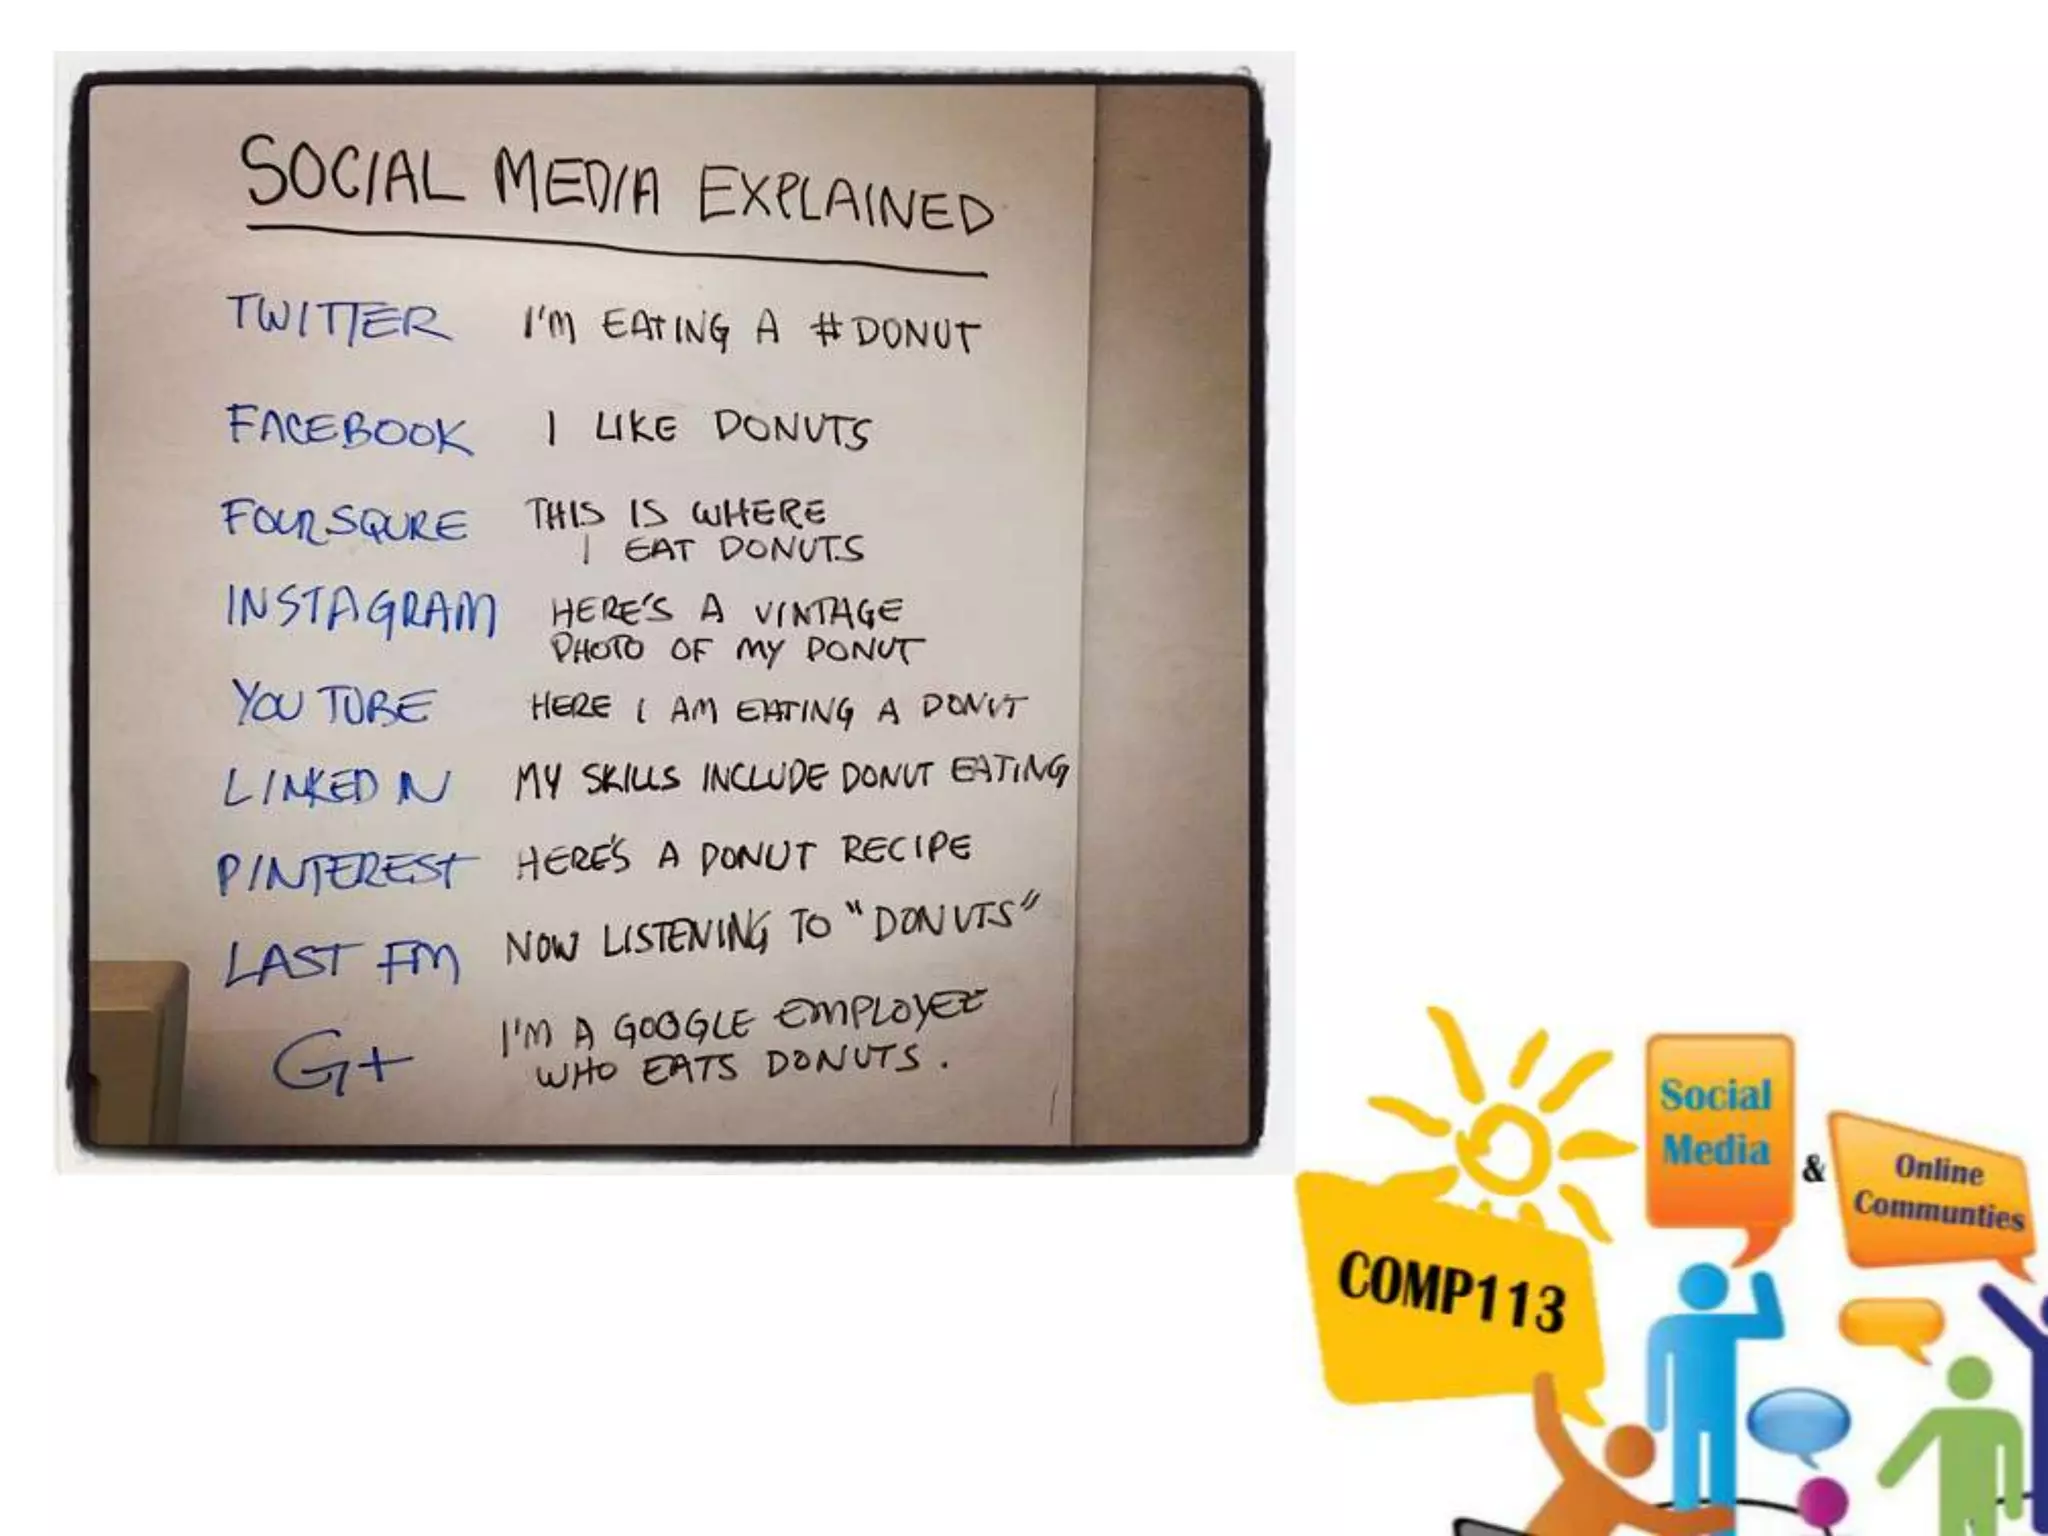 SOCIAL MEDIA EXPLAINED
TWITTER I'M EATING A #DONUT
FACEBOOK I LIKE DONUTS
FOURSQURE THIS IS WHERE
I EAT DONUTS
INSTAGRAM HERE'S A VINTAGE
PHOTO OF MY DONUT
YOU TUBE HERE I AM EATING A DONUT
LINKED IN MY SKILLS INCLUDE DONUT EATING
PINTEREST HERE'S A DONUT RECIPE
LAST FM NOW LISTENING TO "DONUTS"
G+ I'M A GOOGLE EMPLOYEE
WHO EATS DONUTS.
COMP113
Social
Media
&
Online
Communties